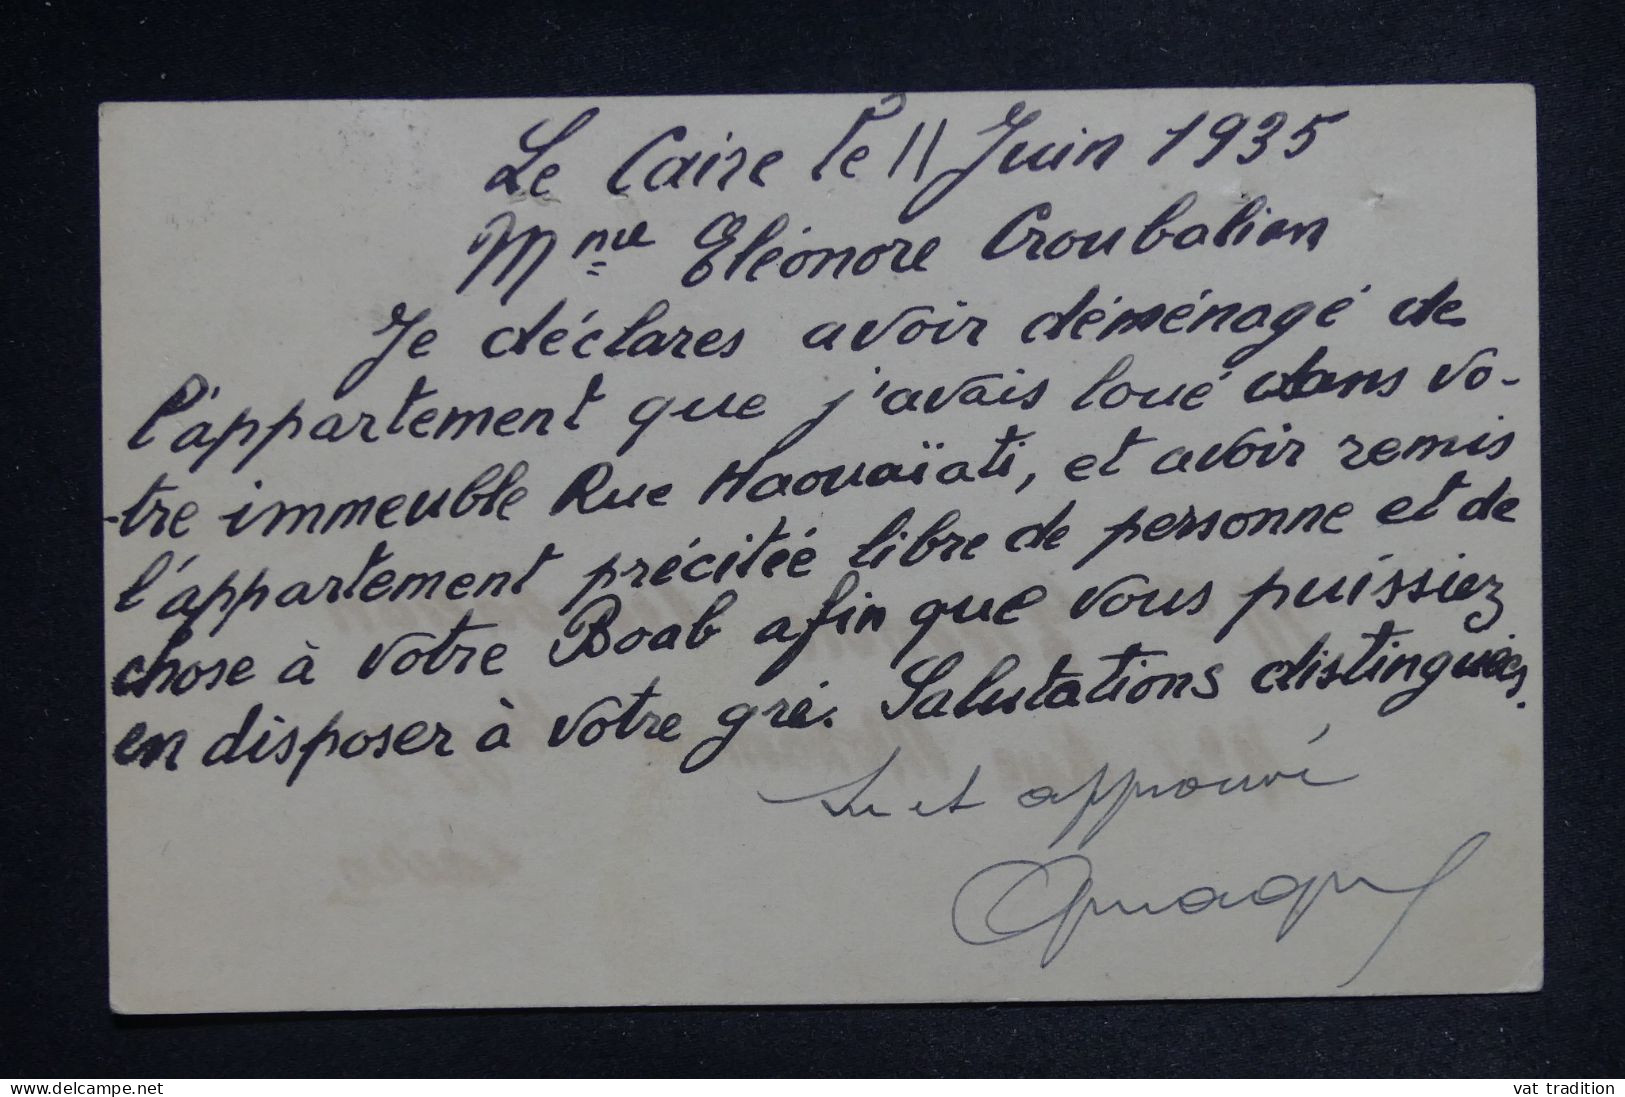 Le Caire le 11 Juin 1935
Mme Eléonore Croubalian
Je déclares avoir déménagé de
l'appartement que j'avais loué dans vo-
-tre immeuble Rue Haouaïati, et avoir remis
l'appartement précitée libre de personne et de
chose à votre Boab afin que vous puissiez
en disposer à votre gré. Salutations distinguées.
Lu et approuvé
www.delcampe.net
vat tradition